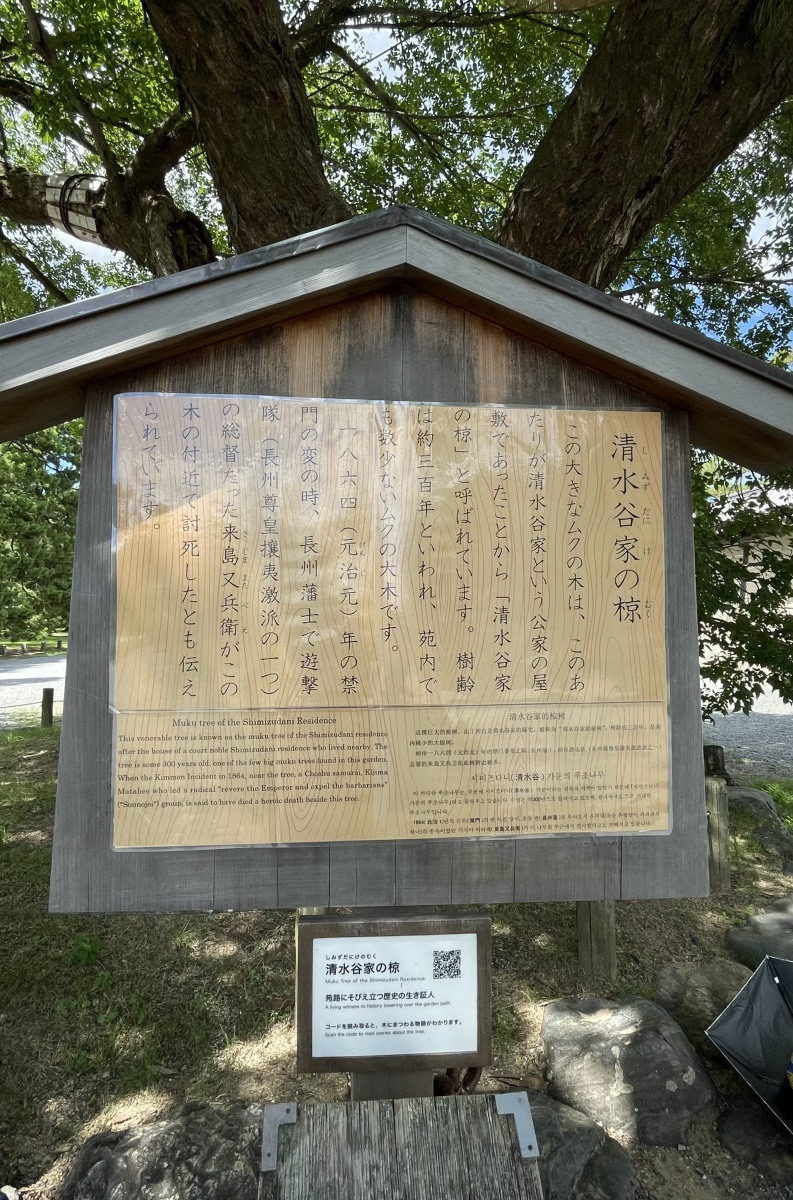 清水谷家の椋
しみずだにけむく
この大きなムクの木は、このあ
たりが清水谷家という公家の屋
敷であったことから「清水谷家
の椋」と呼ばれています。樹齢
は約三百年といわれ、苑内で
も数少ないムクの大木です。
一八六四（元治元）年の禁
げんじ
門の変の時、長州藩士で遊撃
隊（長州尊皇攘夷激派の一つ）
の総督だった来島又兵衛がこの
きじままたべえ
木の付近で討死したとも伝え
られています。
Muku tree of the Shimizudani Residence
This venerable tree is known as the muku tree of the Shimizudani residence
after the house of a court noble Shimizudani residence who lived nearby. The
tree is some 300 years old, one of the few big muku trees found in this garden.
When the Kinmon Incident in 1864, near the tree, a Choshu samurai, Kijima
Matabee who led a radical "revere the Emperor and expel the barbarians"
("Sonnojoi") group, is said to have died a heroic death beside this tree.
清水谷家的椋树
시미즈다니(清水谷) 가문의 푸조나무
しみずだにけのむく
清水谷家の椋
Muku Tree of the Shimizudani Residence
苑路にそびえ立つ歴史の生き証人
A living witness to history towering over the garden path
コードを読み取ると、木にまつわる物語がわかります。
Scan the code to read stories about the tree.